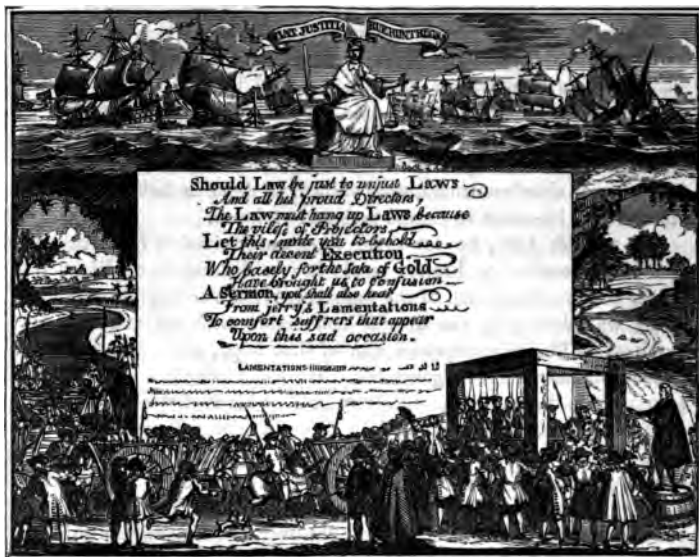 FIAT JUSTITIA
Should Law be just to unjust Laws
And all her proud Directors,
The Law must hang up Laws because
The vilest of Projectors
Let this invite you to behold
Their decent Execution
Who basely for the sake of Gold
Have brought us to Confusion
A Sermon, you shall also hear
From jerry's Lamentations
To comfort Suff'rers that appear
Upon this sad occasion.
LAMENTATIONS